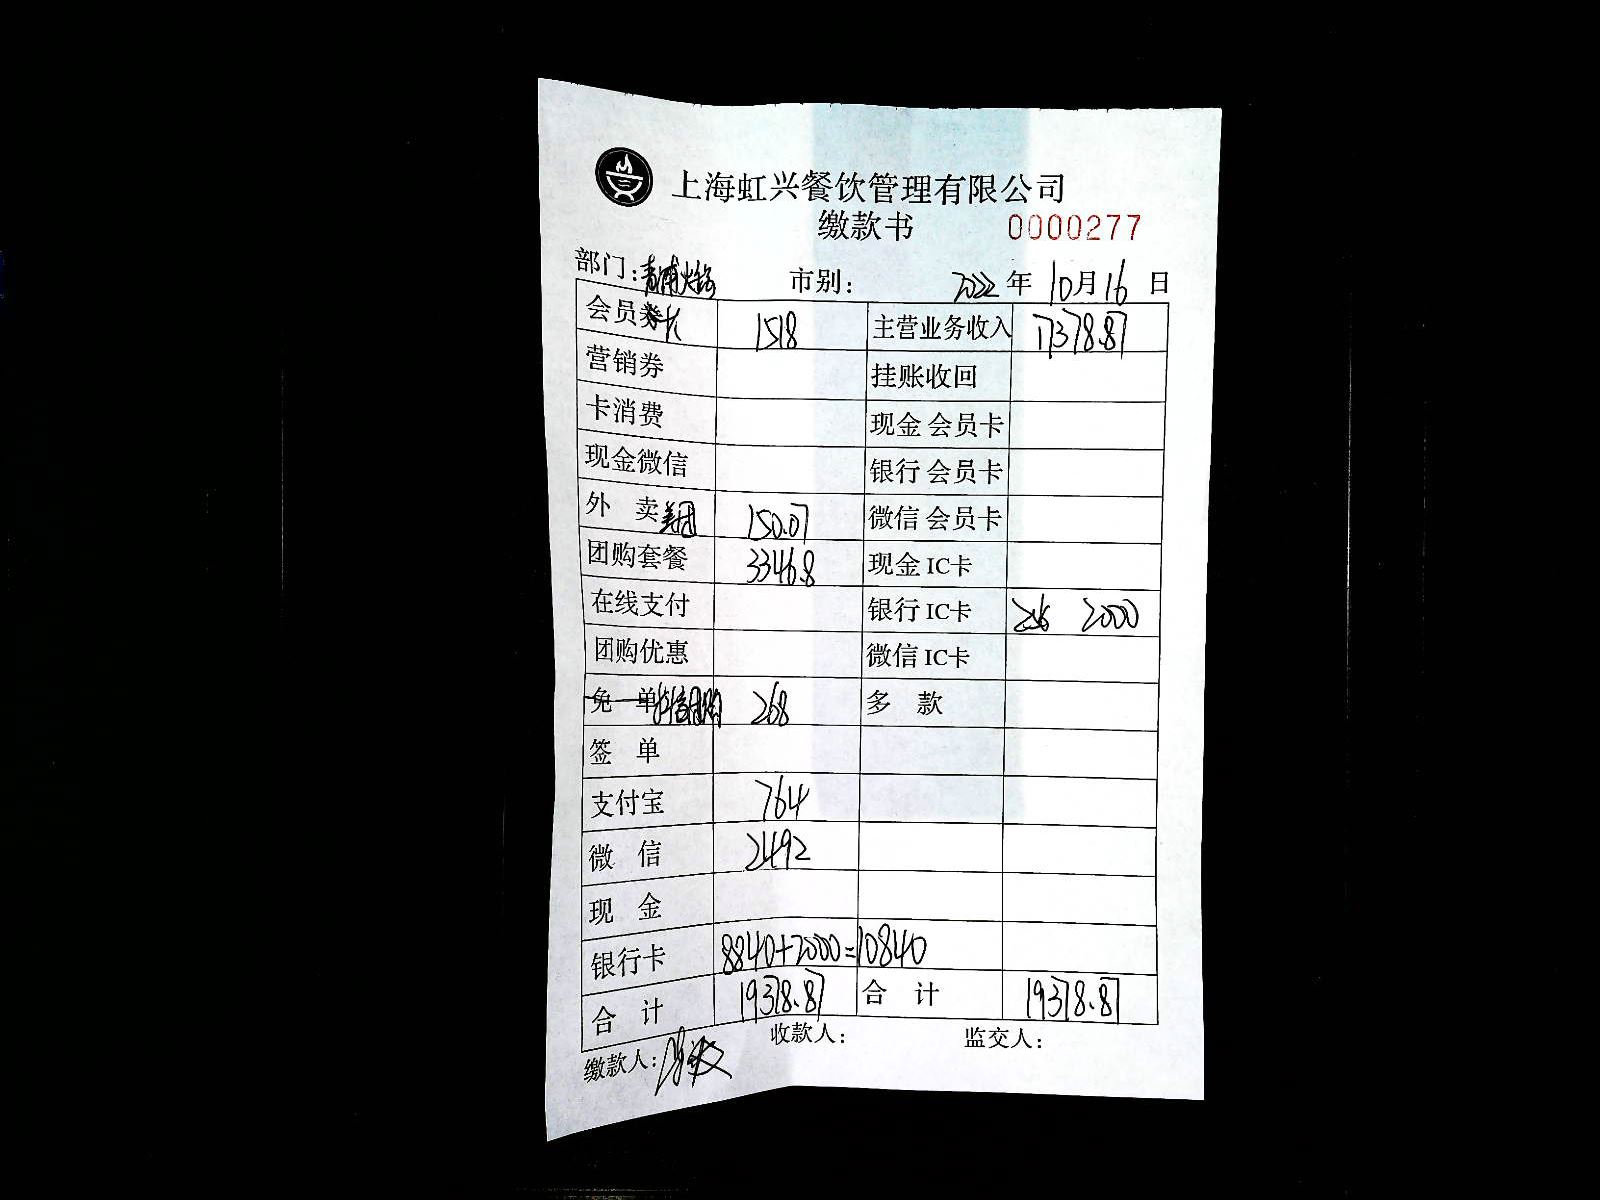 上海虹兴餐饮管理有限公司
缴款书 0000277
部门:青浦火锅 市别: 2022 年 10 月 16 日
会员卡 1518 主营业务收入 17378.87
营销券 挂账收回
卡消费 现金 会员卡
现金微信 银行 会员卡
外 卖 美团 150.07 微信 会员卡
团购套餐 3346.8 现金 IC卡
在线支付 银行 IC卡 2000
团购优惠 微信 IC卡
免 单 抖音团购 268 多 款
签 单
支付宝 764
微 信 2492
现 金
银行卡 8840+2000=10840
合 计 19378.87 合 计 19378.87
缴款人: 收款人: 监交人: